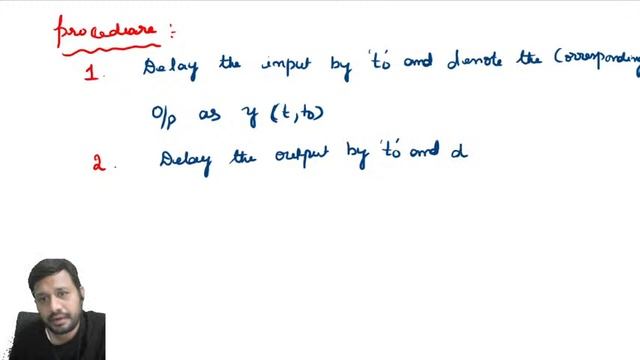 procedure :
1. Delay the input by 'to' and denote the Corresponding
O/p as y (t, to)
2. Delay the output by 'to' and d